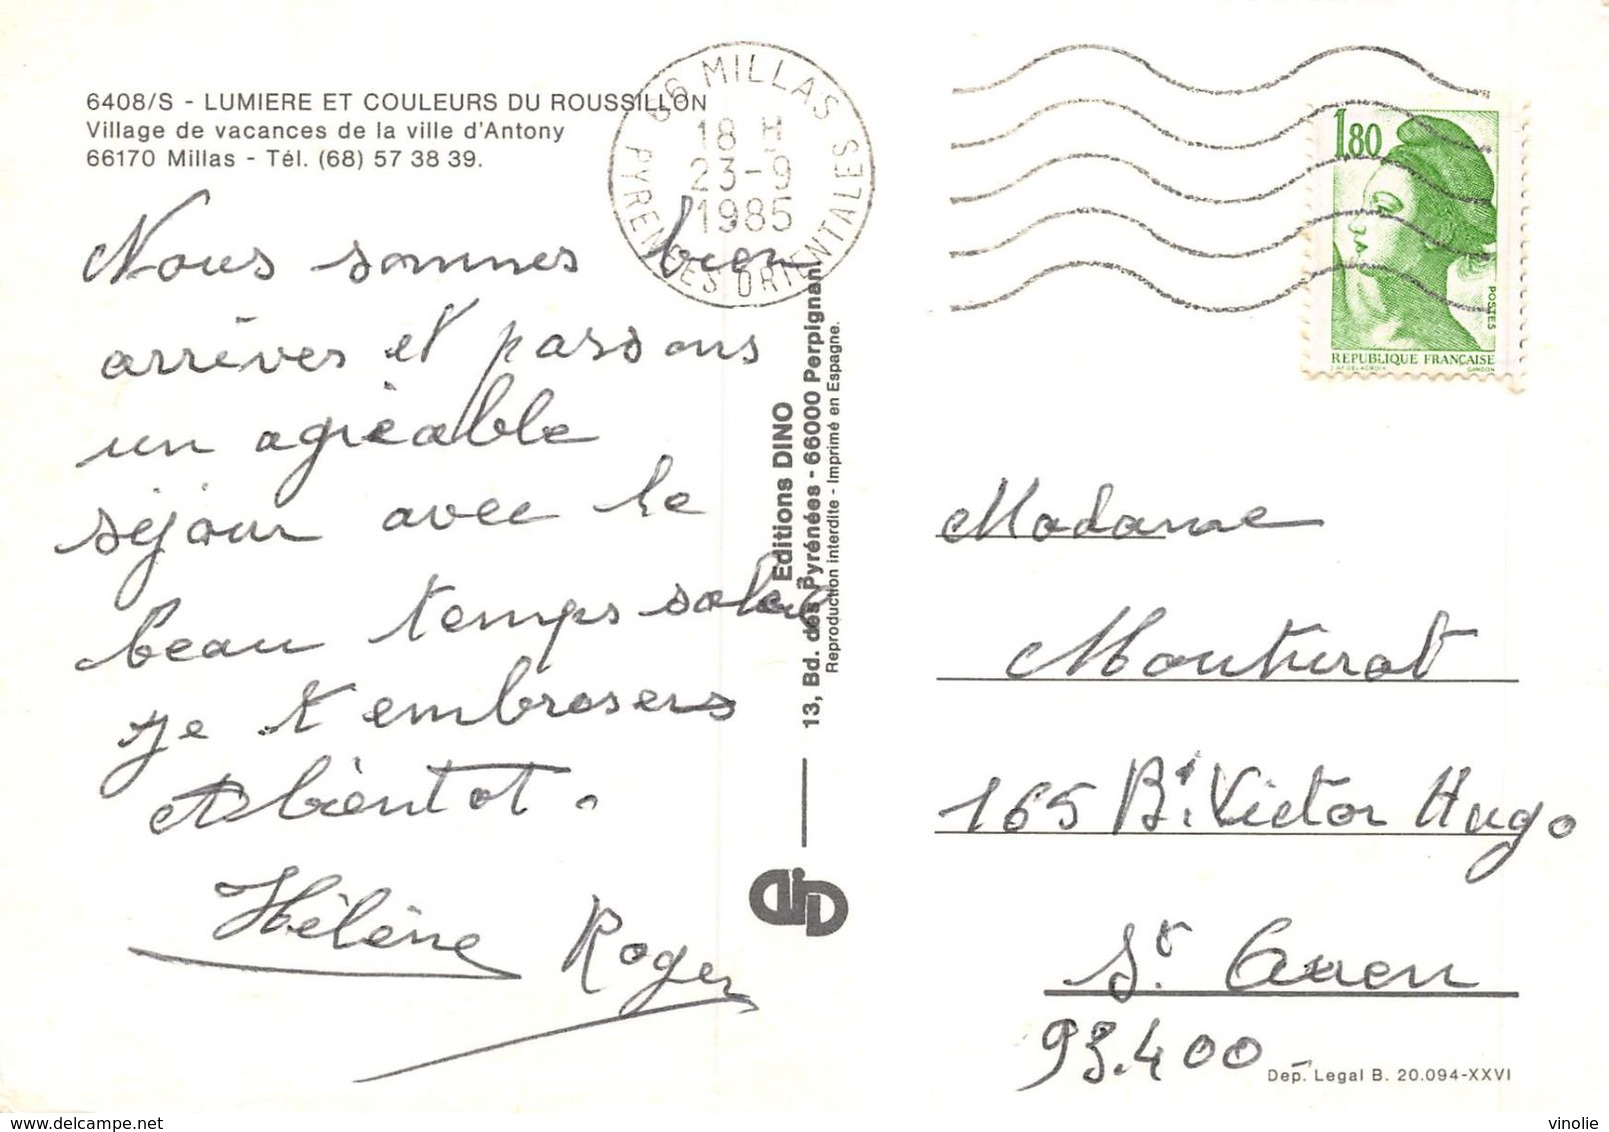 6408/S - LUMIERE ET COULEURS DU ROUSSILLON
Village de vacances de la ville d'Antony
66170 Millas - Tél. (68) 57 38 39.
66 MILLAS
18 H
23-9
1985
PYRENEES ORIENTALES
1,80
POSTES
REPUBLIQUE FRANÇAISE
D'AP. DELACROIX GANDON
Nous sommes bien
arrivés et passons
un agréable
séjour avec le
beau temps soleil
je t'embrasers
A bientot.
Hélène Roger
Editions DINO
13, Bd. des Pyrénées - 66000 Perpignan
Reproduction interdite - Imprimé en Espagne.
Madame
165 Bd. Victor Hugo
St. Ouen
93.400
Dep. Legal B. 20.094-XXVI
vinolie